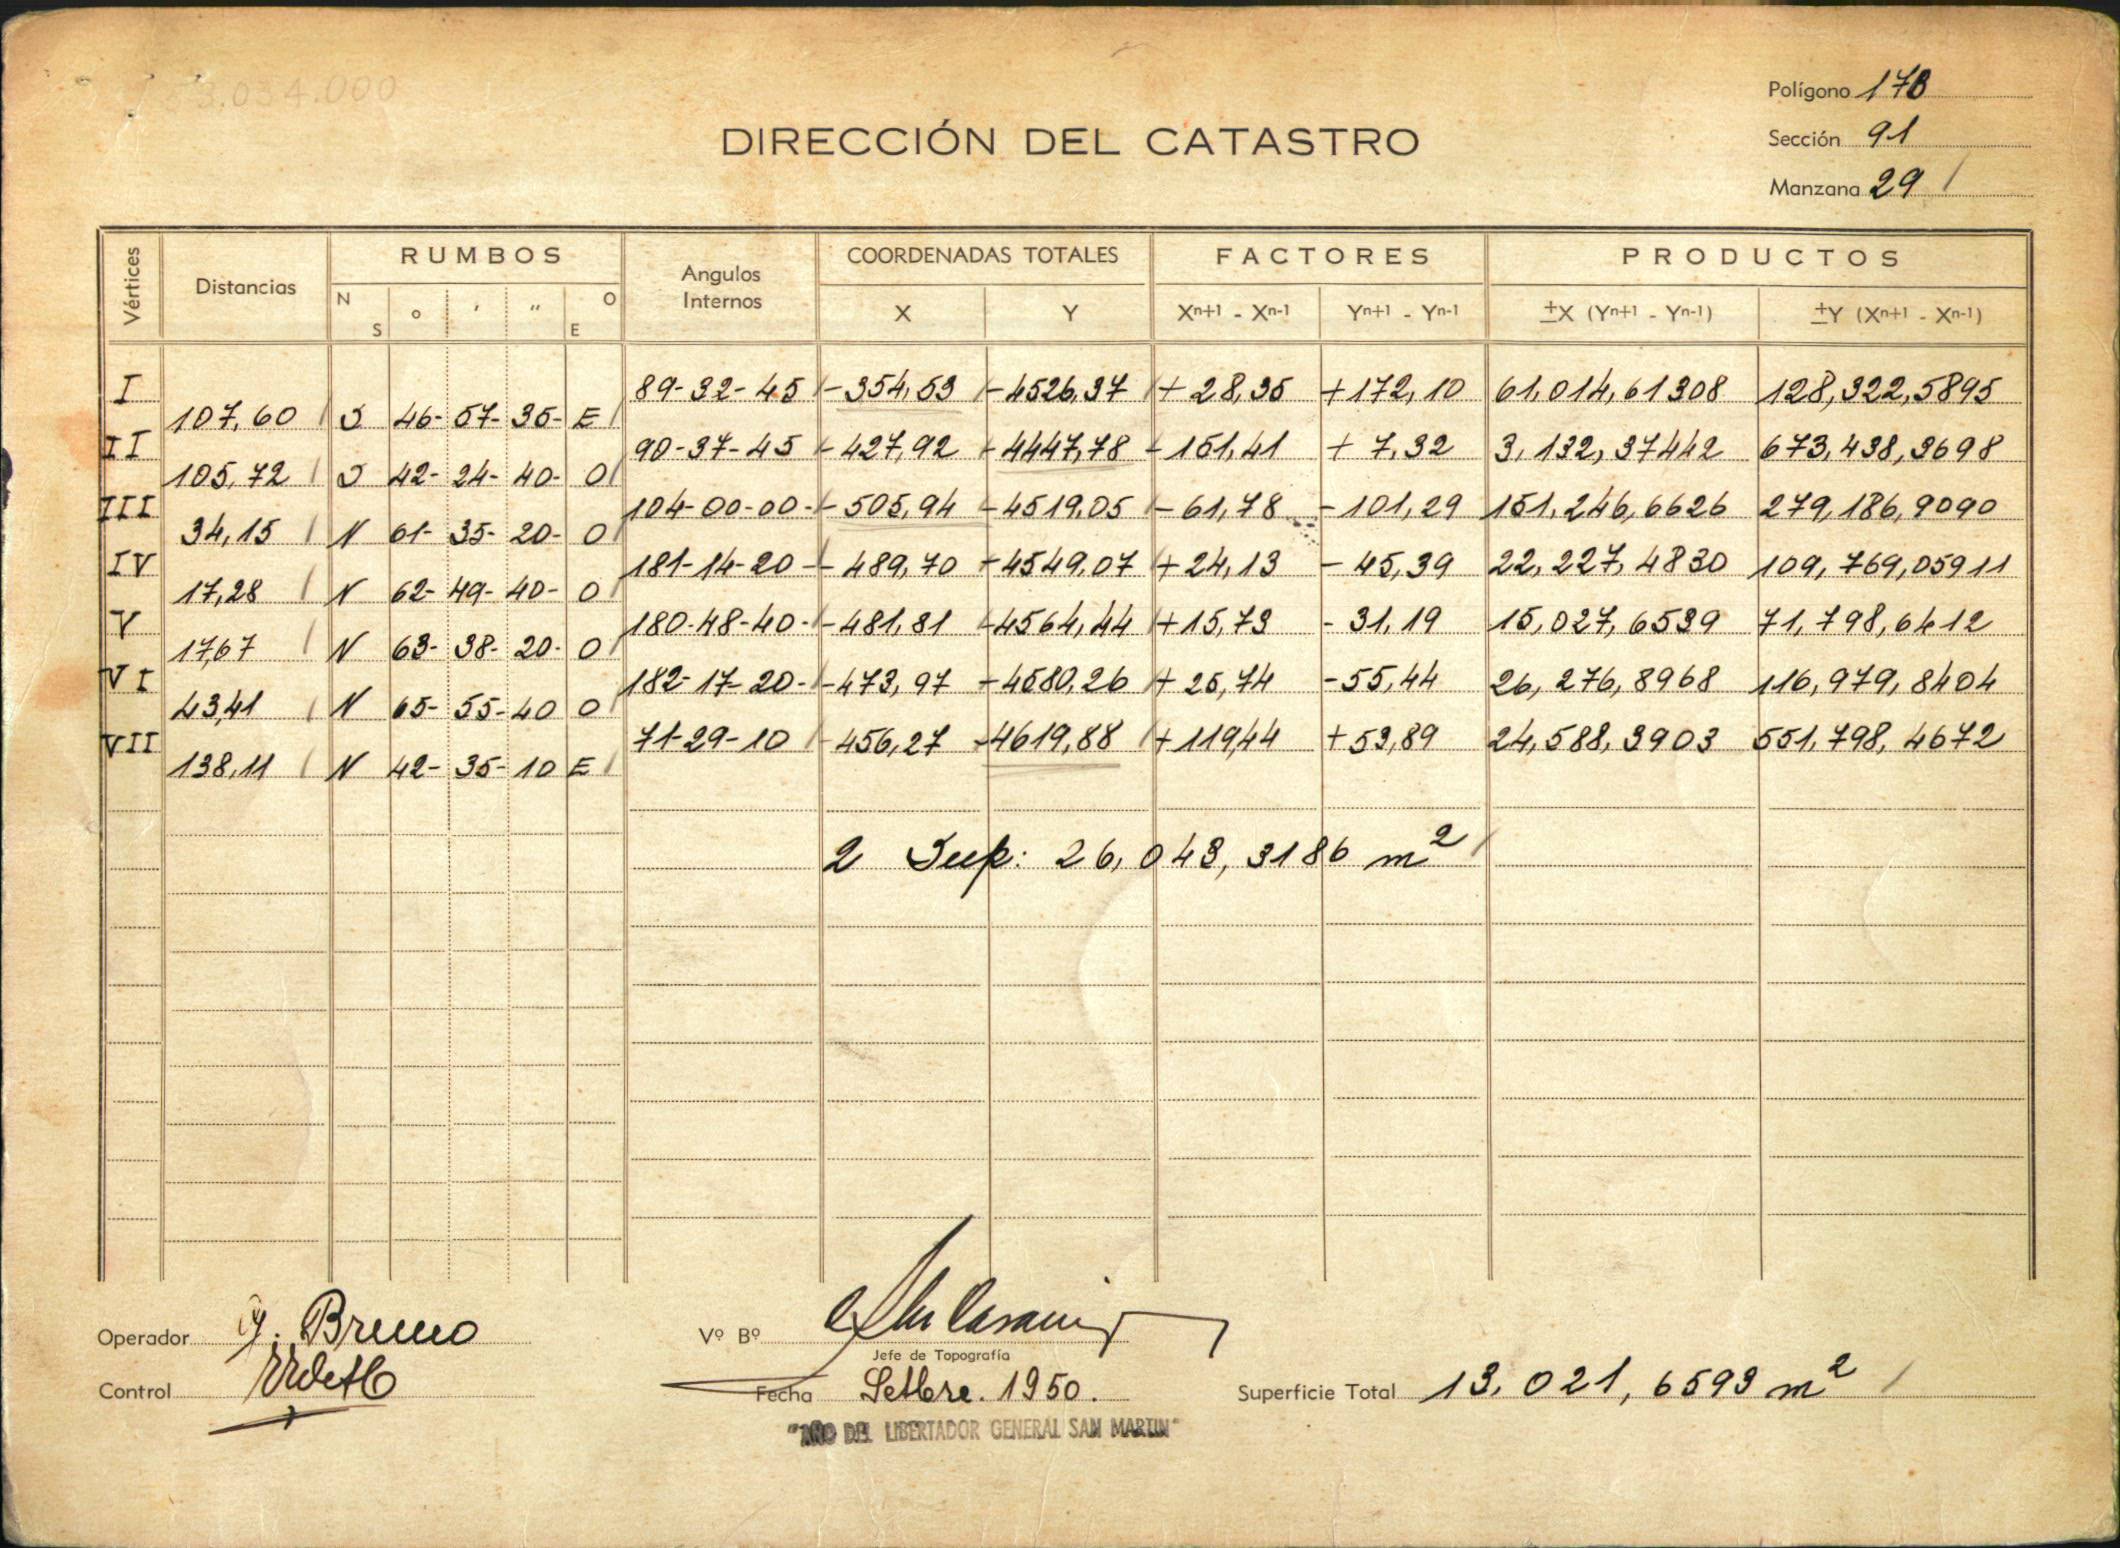 53.034.000
Polígono 17B
DIRECCIÓN DEL CATASTRO
Sección 91
Manzana 29 /
Vértices Distancias RUMBOS Angulos Internos COORDENADAS TOTALES FACTORES PRODUCTOS
N S o ' " O E X Y Xn+1 - Xn-1 Yn+1 - Yn-1 ±X (Yn+1 - Yn-1) ±Y (Xn+1 - Xn-1)
I 89-32-45 -354,53 -4526,37 +28,35 +172,10 61,014,61308 128,322,5895
107,60 S 46-57-35- E
II 90-37-45 -427,92 -4447,78 -151,41 +7,32 3,132,37442 673,438,3698
105,72 S 42-24-40- O
III 104-00-00- -505,94 -4519,05 -61,78 -101,29 151,246,6626 279,186,9090
34,15 N 61-35-20- O
IV 181-14-20- -489,70 -4549,07 +24,13 -45,39 22,227,4830 109,769,05911
17,28 N 62-49-40- O
V 180-48-40- -481,81 -4564,44 +15,73 -31,19 15,027,6539 71,798,6412
17,67 N 63-38-20- O
VI 182-17-20- -473,97 -4580,26 +25,74 -55,44 26,276,8968 116,979,8404
43,41 N 65-55-40 O
VII 71-29-10 -456,27 -4619,88 +119,44 +53,89 24,588,3903 551,798,4672
138,11 N 42-35-10 E
2 Sup: 26,043,3186 m²
Operador Bruno
Vº Bº
Jefe de Topografía
Control
Fecha Setbre. 1950.
Superficie Total 13,021,6593 m²
"AÑO DEL LIBERTADOR GENERAL SAN MARTIN"